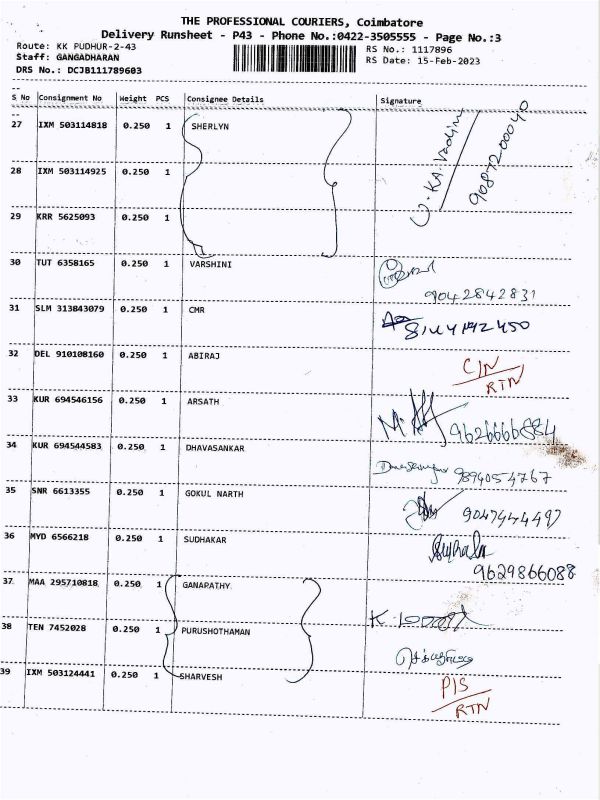 THE PROFESSIONAL COURIERS, Coimbatore
Delivery Runsheet - P43 - Phone No.:0422-3505555 - Page No.:3
Route: KK PUDHUR-2-43 RS No.: 1117896
Staff: GANGADHARAN RS Date: 15-Feb-2023
DRS No.: DCJB111789603
S No Consignment No Weight PCS Consignee Details Signature
27 IXM 503114818 0.250 1 SHERLYN
90872 00040
28 IXM 503114925 0.250 1
29 KRR 5625093 0.250 1
30 TUT 6358165 0.250 1 VARSHINI
9042842831
31 SLM 313843079 0.250 1 CMR
32 DEL 910108160 0.250 1 ABIRAJ C/N
RTN
33 KUR 694546156 0.250 1 ARSATH
9626666884
34 KUR 694544583 0.250 1 DHAVASANKAR
9894054767
35 SNR 6613355 0.250 1 GOKUL NARTH
9047444497
36 MYD 6566218 0.250 1 SUDHAKAR
9629866088
37 MAA 295710818 0.250 1 GANAPATHY
38 TEN 7452028 0.250 1 PURUSHOTHAMAN
39 IXM 503124441 0.250 1 SHARVESH P/S
RTN